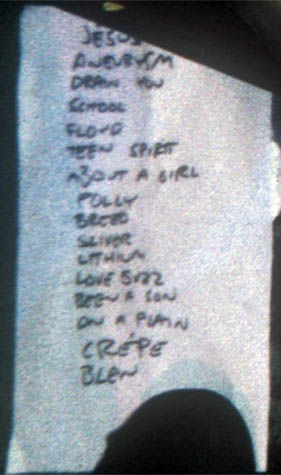 JESUS
ANEURYSM
DRAIN YOU
SCHOOL
FLOYD
TEEN SPIRIT
ABOUT A GIRL
POLLY
BREED
SLIVER
LITHIUM
LOVE BUZZ
BEEN A SON
ON A PLAIN
CRÉPE
BLEW